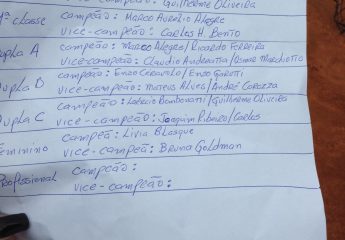 campeão: Guilherme Oliveira
1ª classe campeão: Marco Aurélio Alegre
vice-campeão: Carlos H. Bento
Dupla A campeão: Marco Alegre/Ricardo Ferreira
vice-campeão: Claudio Andreatta/Osmar Marchiotto
Dupla B campeão: Enzo Ceravolo/Enzo Garutti
vice-campeão: Mateus Alves/André Corazza
Dupla C campeão: Laércio Bombonatti/Guilherme Oliveira
vice-campeão: Joaquim Ribeiro/Carlos
Feminino campeã: Livia Blasque
vice-campeã: Bruna Goldman
Profissional campeão:
vice-campeão: